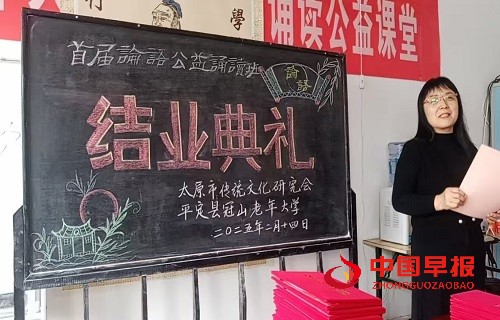 有 學
诵读公益课堂
首届論語公益誦讀班
論語
结业典礼
太原市传说文化研究会
平定县冠山老年大学
二〇二五年二月十四日
中国早报
ZHONGGUOZAOBAO